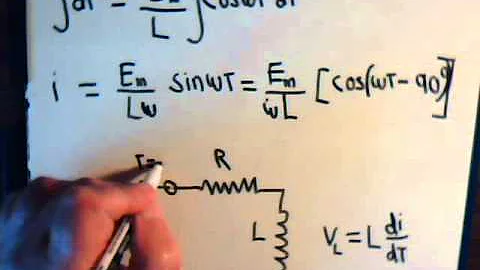 ∫di = — / L ∫cosωt dt
i = Em/Lω sinωT = Em/ωL [cos(ωT-90°]
R
L
VL = L di/dT